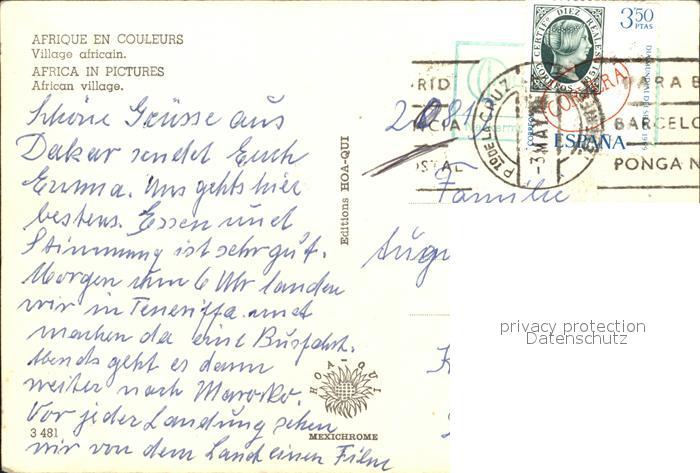 AFRIQUE EN COULEURS
Village africain.
AFRICA IN PICTURES
African village.
Schöne Grüsse aus
Dakar sendet Euch
Emma. Uns gehts hier
bestens. Essen und
Stimmung ist sehr gut.
Morgen um 6 Uhr landen
wir in Teneriffa und
machen da eine Busfahrt.
Abends geht es dann
weiter nach Marokko.
Vor jeder Landung sehen
wir von dem Land einen Film
3 481
Editions HOA-QUI
HOA-QUI
MEXICHROME
CERTIFdo DIEZ REALES
CORREOS 1851
3'50
PTAS
CORREOS
ESPAÑA
PTO DE LA CRUZ
-3 MAY
RID
NCIA
OSTAL
PARA
BARCELO
PONGA N
Familie
Aug
privacy protection
Datenschutz